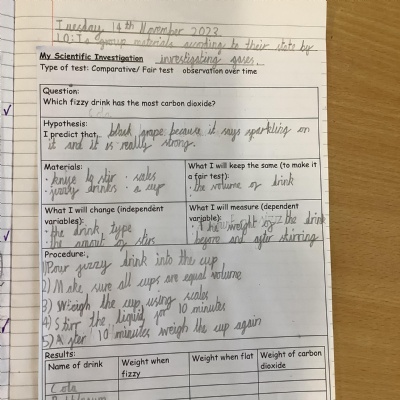 Tuesday 14th November 2023.
LO: To group materials according to their state by
My Scientific Investigation investigating gases.
Type of test: Comparative/ Fair test observation over time
Question:
Which fizzy drink has the most carbon dioxide?
Hypothesis:
I predict that, black grape because it says sparkling on
it and it is really strong.
Materials:
· knife to stir · scales
· fizzy drinks · a cup
What I will keep the same (to make it
a fair test):
· the volume of drink
What I will change (independent
variables):
· the drink type
· the amount of stirs
What I will measure (dependent
variable):
· the weight of the drink
before and after stirring
Procedure:
1) Pour fizzy drink into the cup
2) Make sure all cups are equal volume
3) Weigh the cup using scales
4) Stir the liquid for 10 minutes
5) After 10 minutes weigh the cup again
Results:
Name of drink
Weight when
fizzy
Weight when flat
Weight of carbon
dioxide
Cola